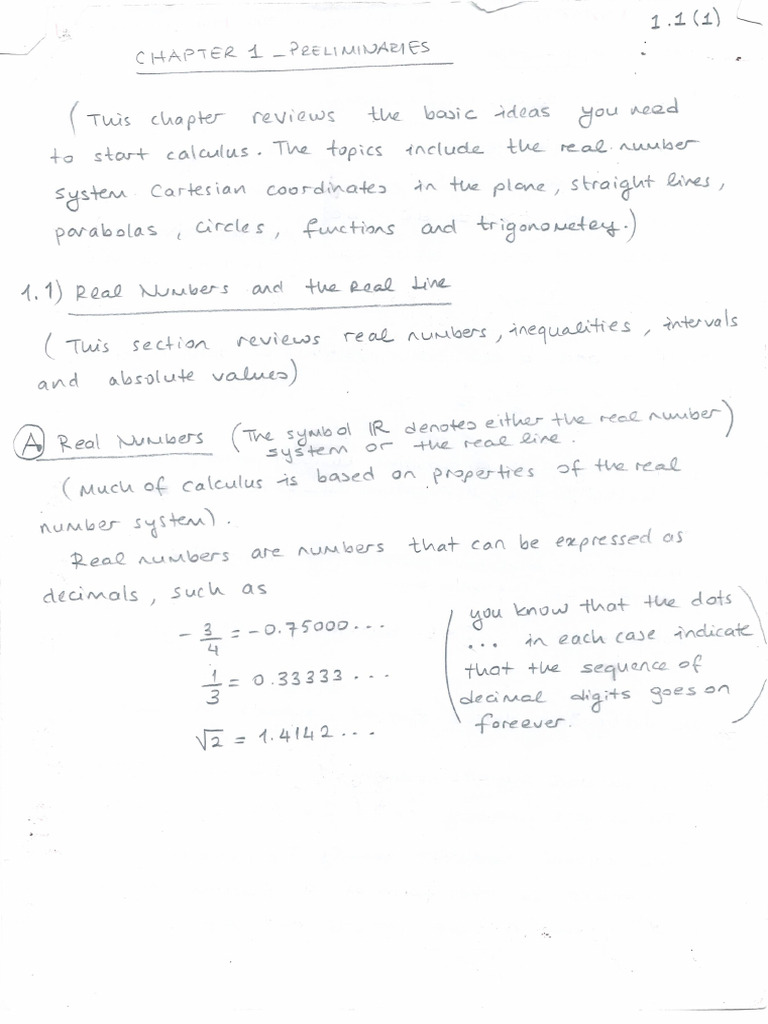 1.1(1)
CHAPTER 1 - PRELIMINARIES
(This chapter reviews the basic ideas you need
to start calculus. The topics include the real number
system Cartesian coordinates in the plane, straight lines,
parabolas, circles, functions and trigonometry.)
1.1) Real Numbers and the Real Line
(This section reviews real numbers, inequalities, intervals
and absolute values)
A Real Numbers (The symbol ℝ denotes either the real number
system or the real line.)
(Much of calculus is based on properties of the real
number system).
Real numbers are numbers that can be expressed as
decimals, such as
-3/4 = -0.75000...
1/3 = 0.33333...
√2 = 1.4142...
(you know that the dots
... in each case indicate
that the sequence of
decimal digits goes on
foreever.)